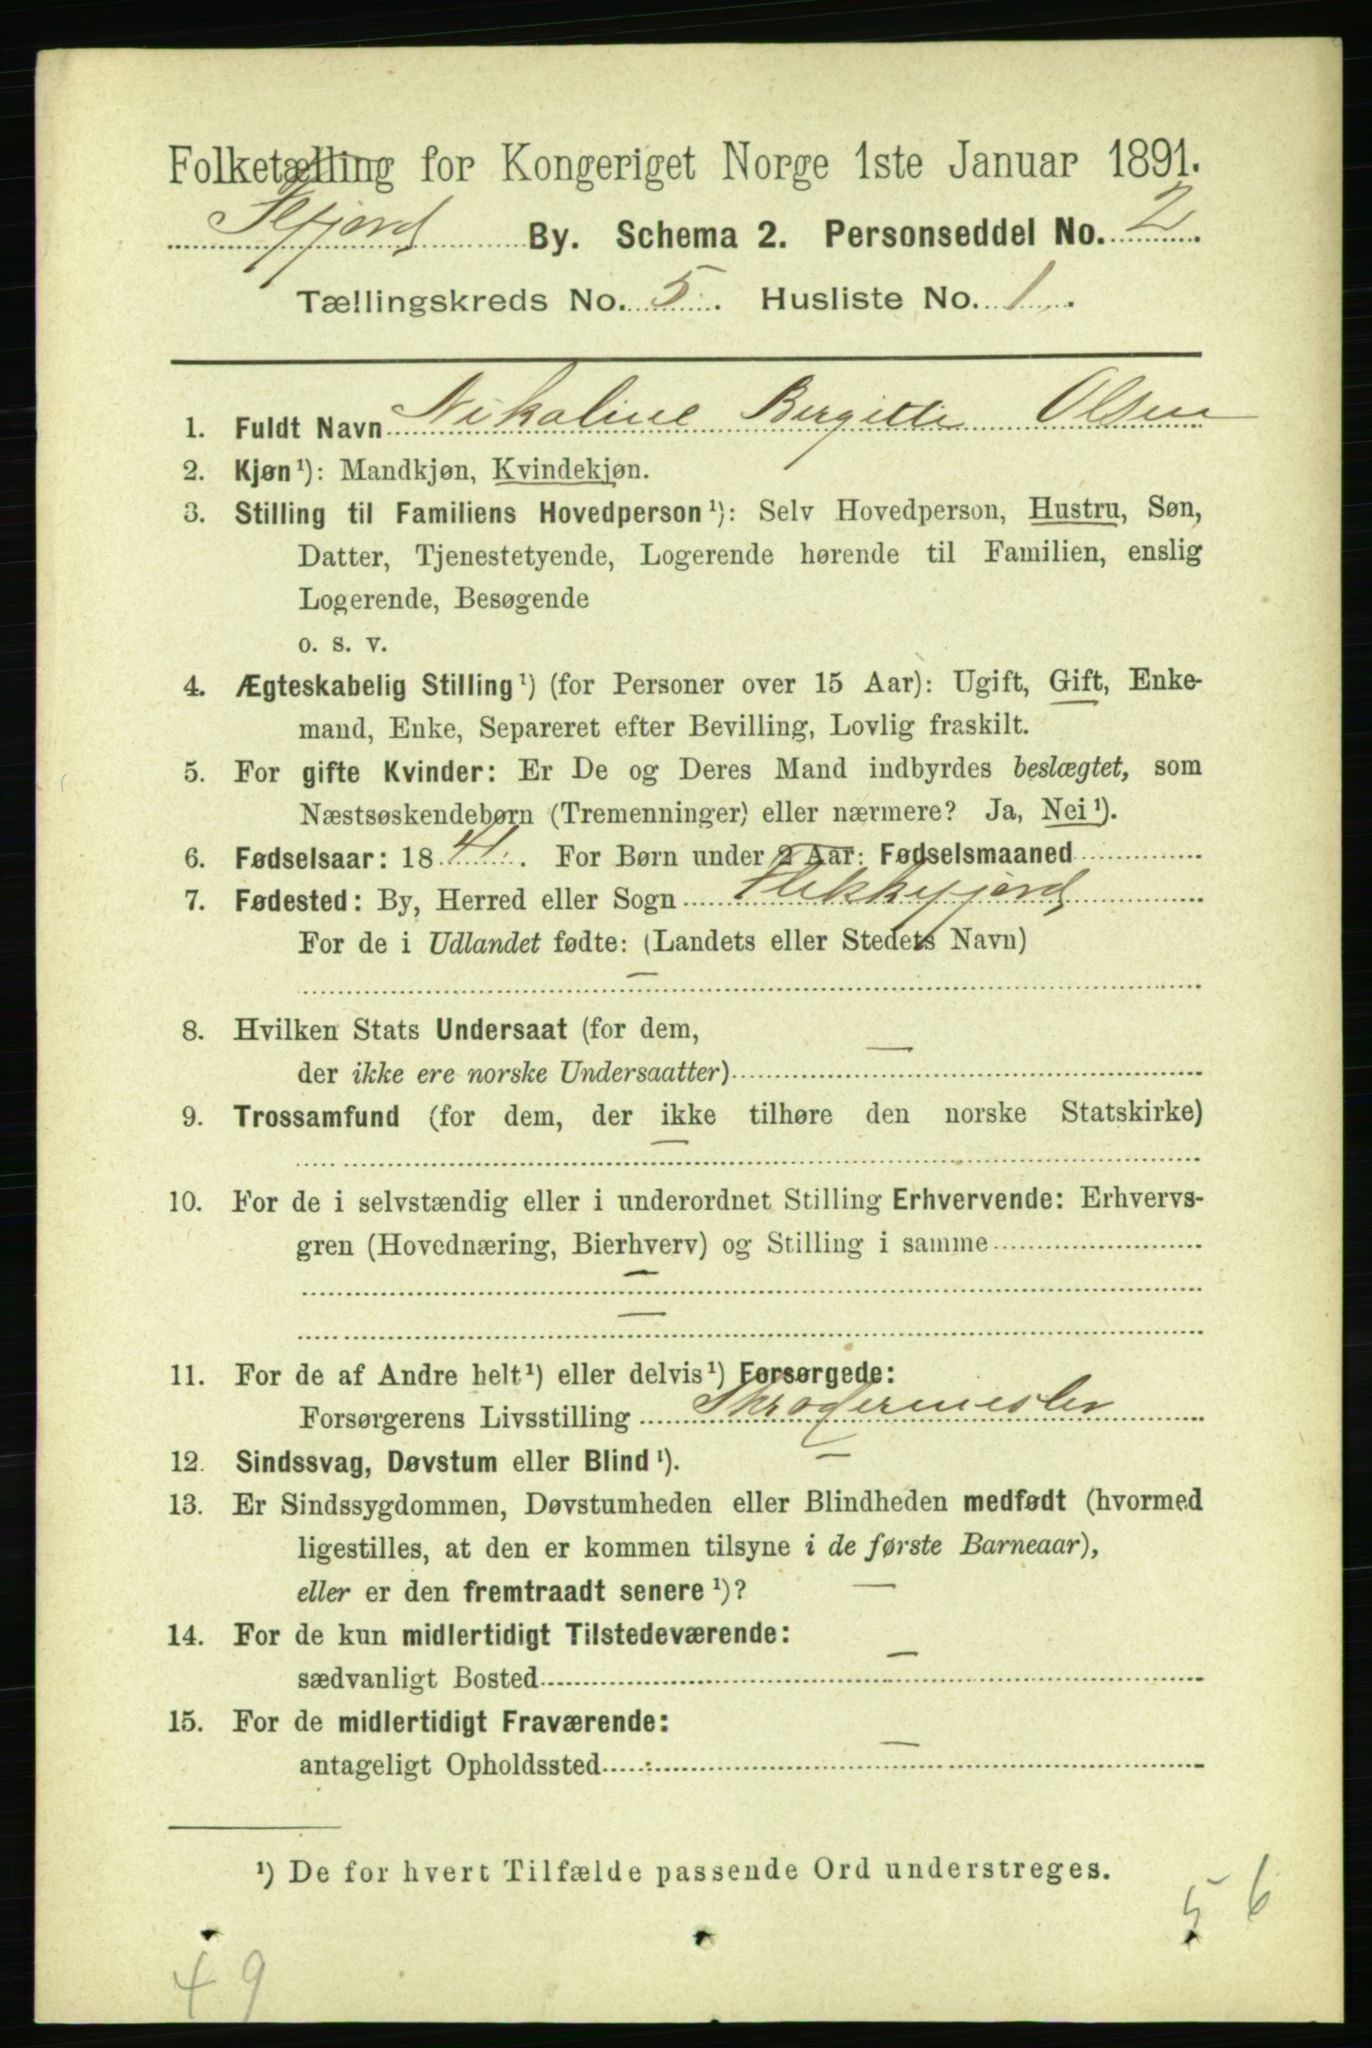 Folketælling for Kongeriget Norge 1ste Januar 1891.
Flfjord By. Schema 2. Personseddel No. 2
Tællingskreds No. 5. Husliste No. 1.
1. Fuldt Navn Nikoline Bergitte Olsen
2. Kjøn¹): Mandkjøn, Kvindekjøn.
3. Stilling til Familiens Hovedperson¹): Selv Hovedperson, Hustru, Søn,
Datter, Tjenestetyende, Logerende hørende til Familien, enslig
Logerende, Besøgende
o. s. v.
4. Ægteskabelig Stilling¹) (for Personer over 15 Aar): Ugift, Gift, Enke-
mand, Enke, Separeret efter Bevilling, Lovlig fraskilt.
5. For gifte Kvinder: Er De og Deres Mand indbyrdes beslægtet, som
Næstsøskendebørn (Tremenninger) eller nærmere? Ja, Nei¹).
6. Fødselsaar: 1841. For Børn under 2 Aar: Fødselsmaaned
7. Fødested: By, Herred eller Sogn Flekkefjord
For de i Udlandet fødte: (Landets eller Stedets Navn)
—
8. Hvilken Stats Undersaat (for dem,
der ikke ere norske Undersaatter) —
9. Trossamfund (for dem, der ikke tilhøre den norske Statskirke)
—
10. For de i selvstændig eller i underordnet Stilling Erhvervende: Erhvervs-
gren (Hovednæring, Bierhverv) og Stilling i samme
—
—
11. For de af Andre helt¹) eller delvis¹) Forsørgede:
Forsørgerens Livsstilling Skrædermester
12. Sindssvag, Døvstum eller Blind¹). —
13. Er Sindssygdommen, Døvstumheden eller Blindheden medfødt (hvormed
ligestilles, at den er kommen tilsyne i de første Barneaar),
eller er den fremtraadt senere¹)? —
14. For de kun midlertidigt Tilstedeværende:
sædvanligt Bosted —
15. For de midlertidigt Fraværende:
antageligt Opholdssted —
¹) De for hvert Tilfælde passende Ord understreges.
5 6
49